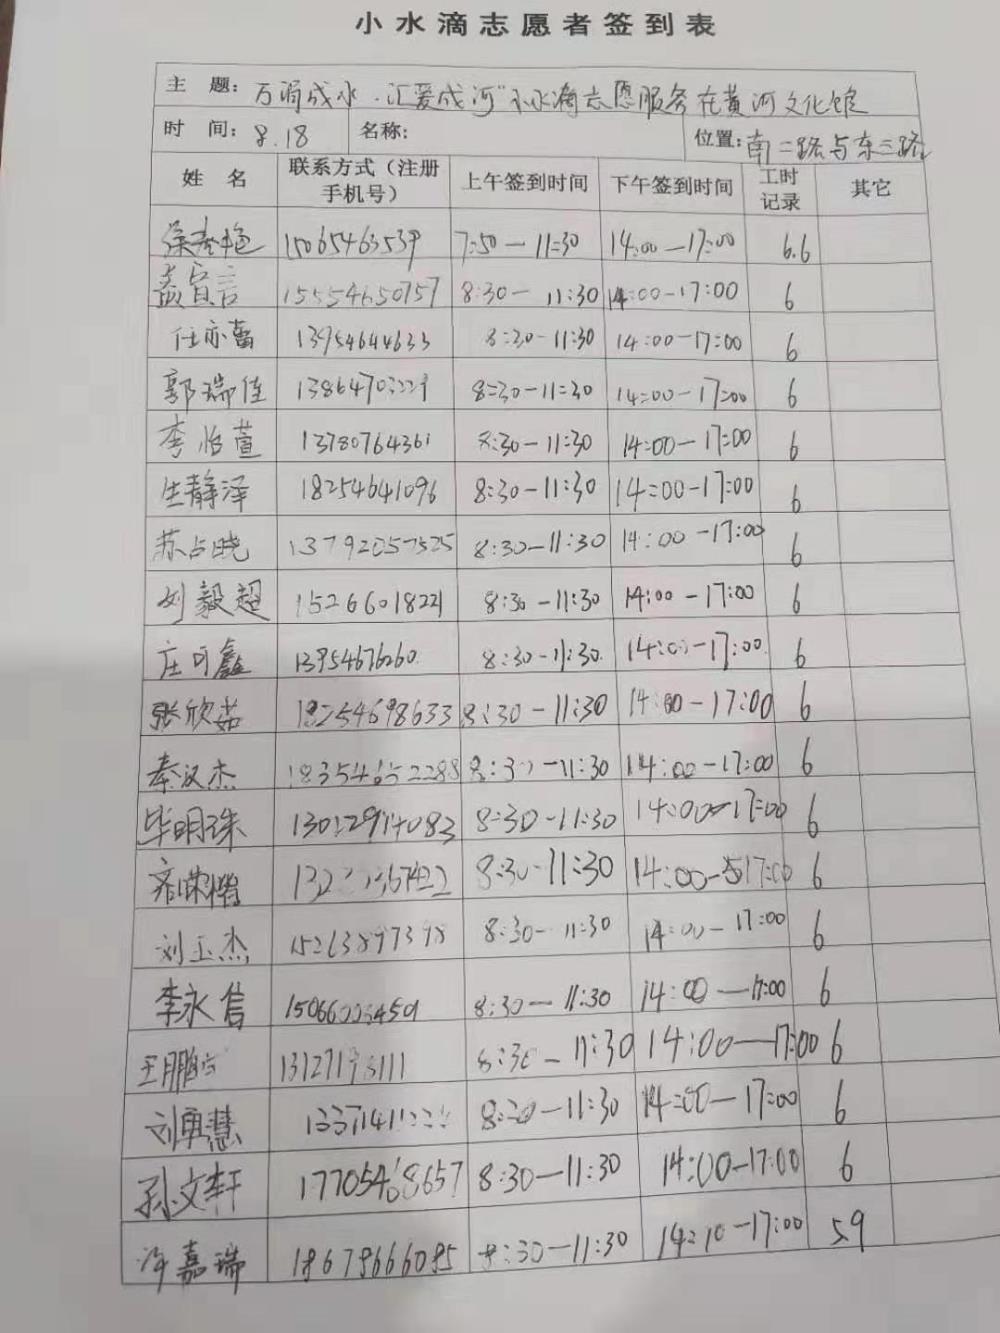 小水滴志愿者签到表
主 题: 万滴成水·汇爱成河"小水滴志愿服务在黄河文化馆
时 间: 8.18 名称: 位置: 南二路与东三路
姓 名 联系方式（注册手机号） 上午签到时间 下午签到时间 工时记录 其它
15065463539 7:50—11:30 14:00—17:00 6.6
宣言 15554650757 8:30— 11:30 14:00-17:00 6
任亦蕾 13954644633 8:30-11:30 14:00-17:00 6
郭瑞佳 8:30-11:30 14:00-17:00 6
李怡萱 13780764361 8:30-11:30 14:00-17:00 6
生静泽 18254641096 8:30-11:30 14:00-17:00 6
苏占晓 13792057525 8:30-11:30 14:00-17:00 6
刘毅超 15266018221 8:30-11:30 14:00-17:00 6
庄可鑫 13954676260. 8:30-11:30. 14:00-17:00. 6
张欣茹 18254698633 8:30-11:30 14:00-17:00 6
秦汉杰 8:30-11:30 14:00-17:00 6
毕明珠 8:30-11:30 14:00-17:00 6
8:30-11:30 14:00-17:00 6
刘玉杰 15263897398 8:30- 11:30 14:00-17:00 6
李永信 8:30—11:30 14:00—17:00 6
王鹏 8:30-11:30 14:00—17:00 6
刘再慧 8:30-11:30 14:00-17:00 6
孙文轩 17705468657 8:30-11:30 14:00-17:00 6
许嘉瑞 18678666085 8:30-11:30 14:10-17:00 5.9